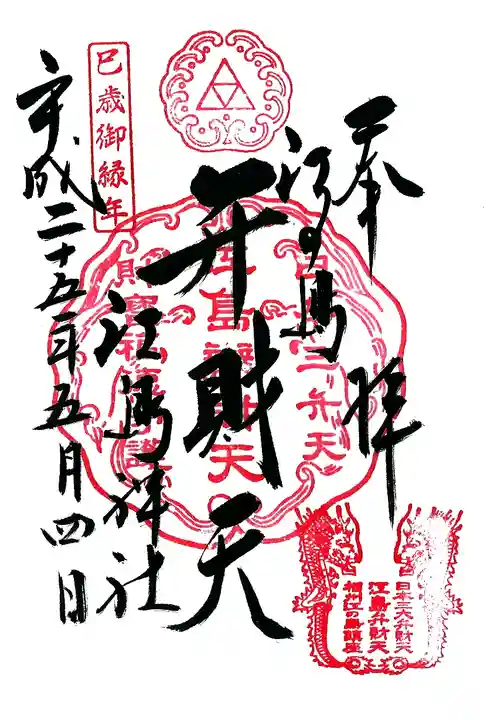 奉拝
江の島
弁財天
江島神社
巳歳御縁年
平成二十五年五月四日
日本三大弁財天
江島弁財天
相州江の島鎮座